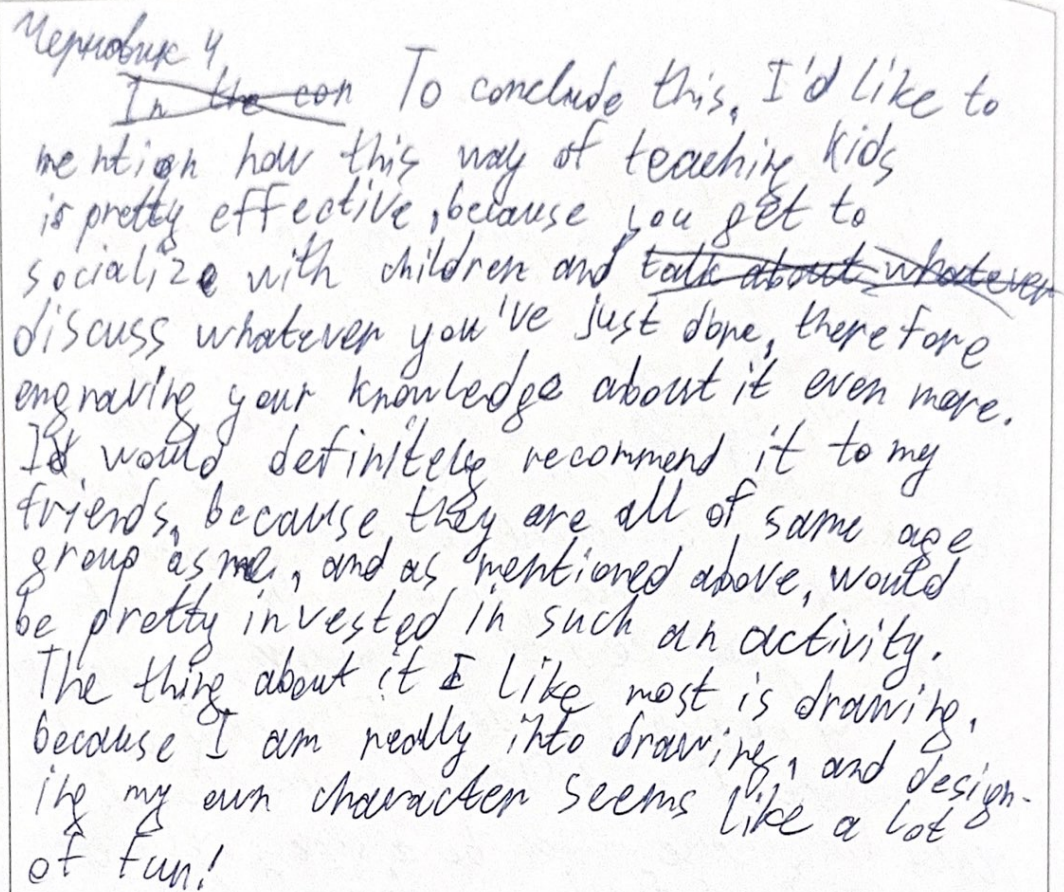 Черновик 4
In the con To conclude this, I'd like to
mention how this way of teaching kids
is pretty effective, because you get to
socialize with children and talk about whatever
discuss whatever you've just done, therefore
engraving your knowledge about it even more.
I would definitely recommend it to my
friends, because they are all of same age
group as me, and as mentioned above, would
be pretty invested in such an activity.
The thing about it I like most is drawing,
because I am really into drawing, and design-
ing my own character seems like a lot
of fun!